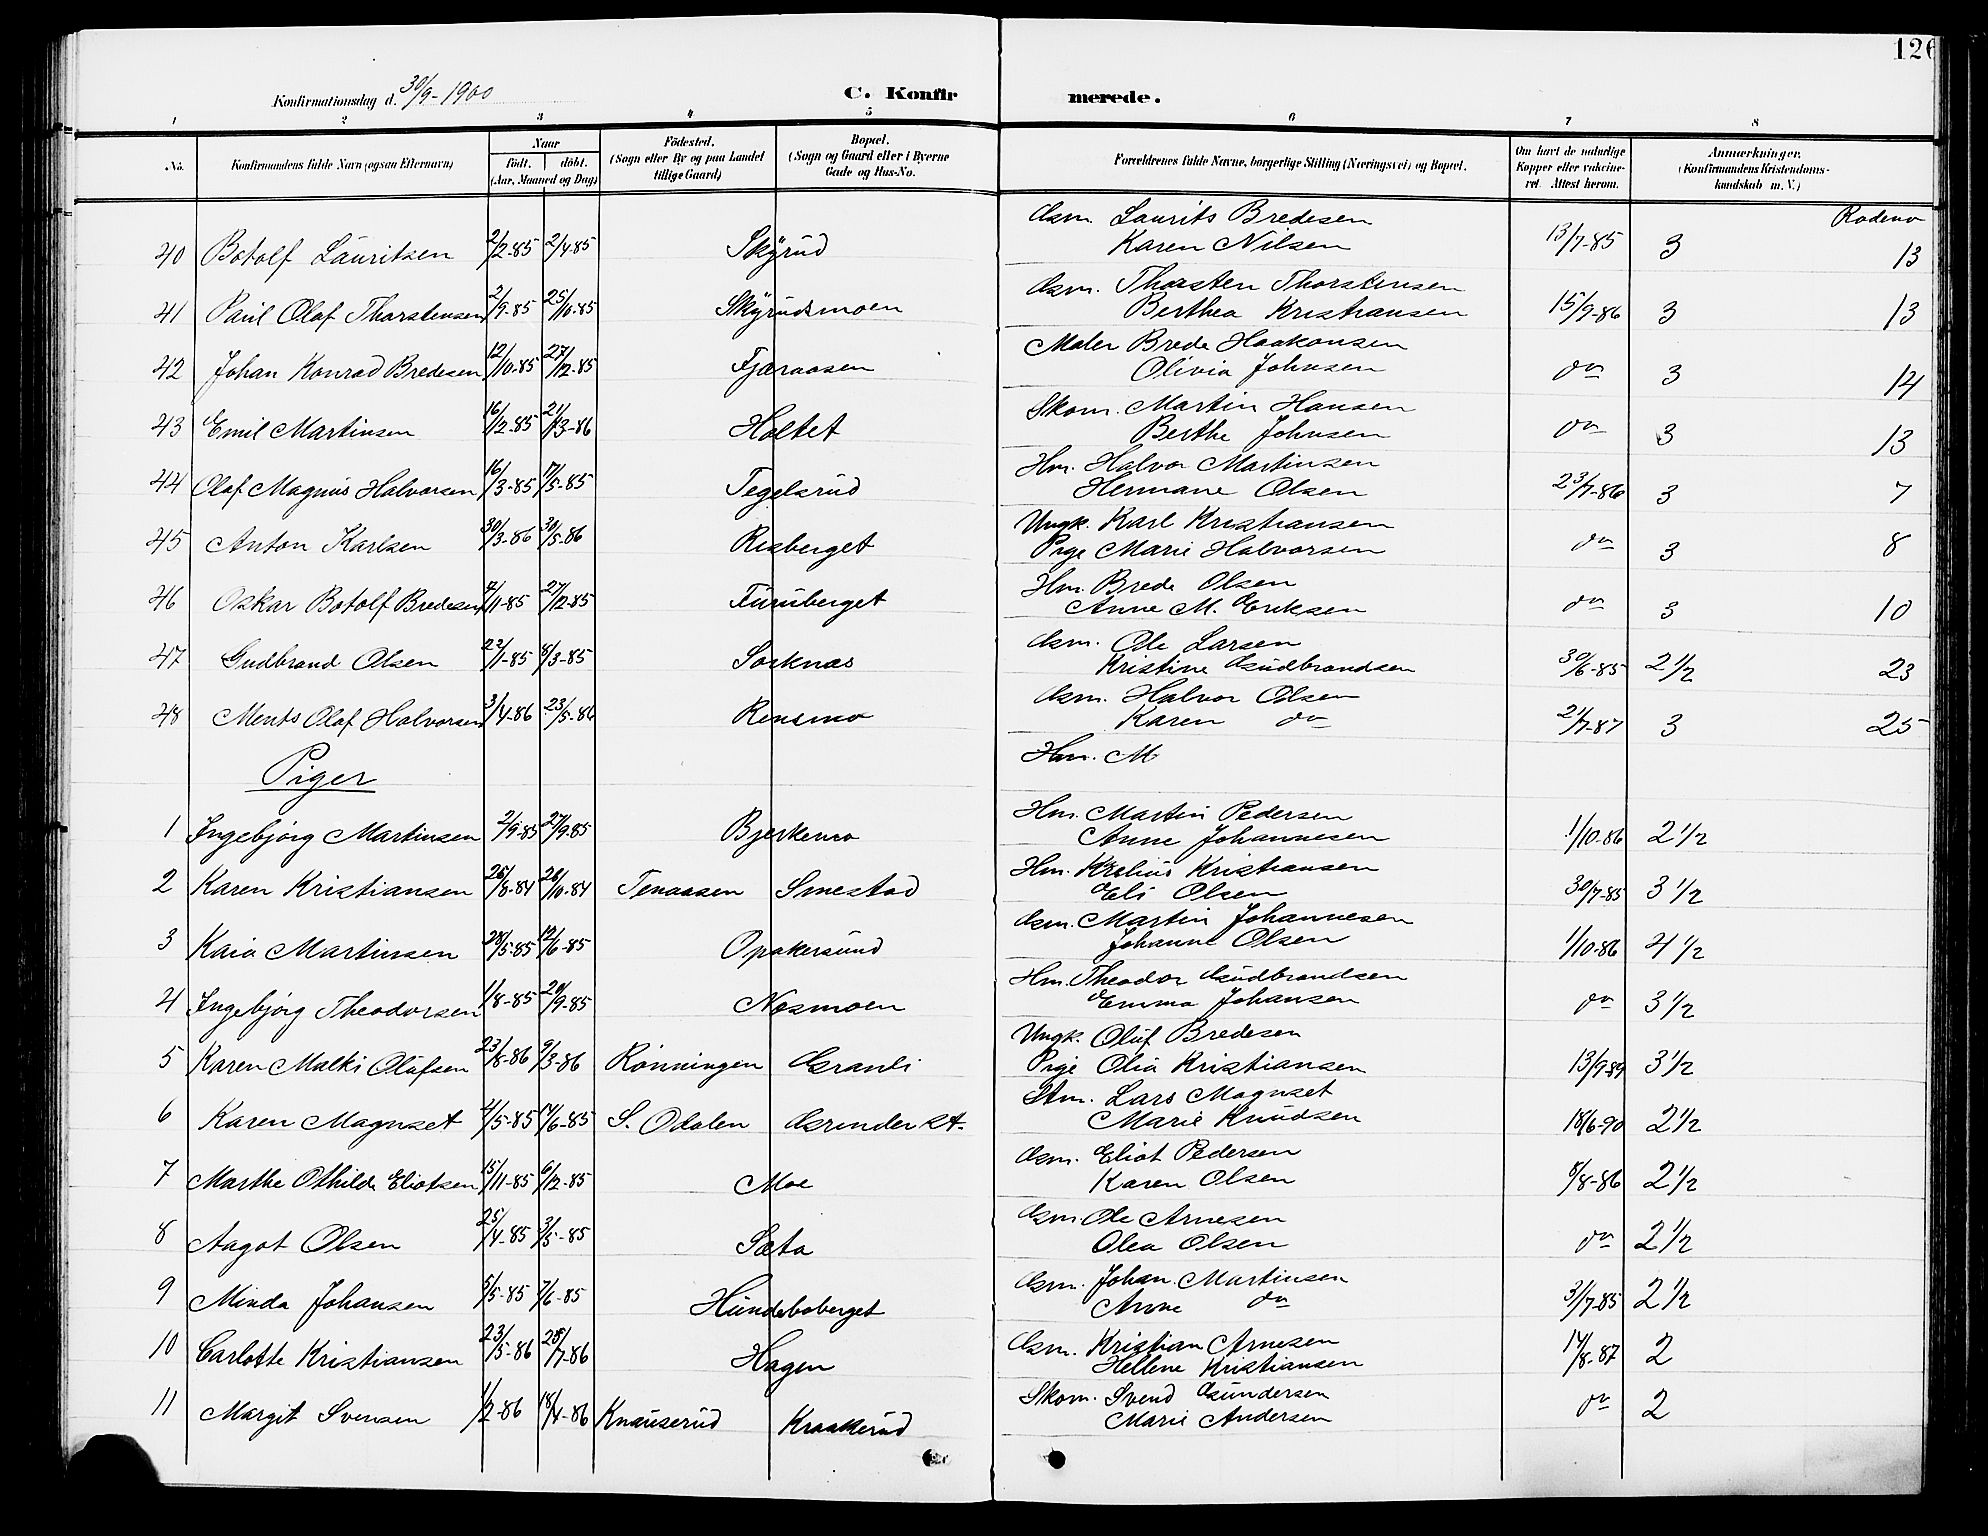 126
Konfirmationsdag d. 30/9-1900
C. Konfirmerede.
1 2 3 4 5 6 7 8
No. Konfirmandens fulde Navn (ogsaa Efternavn) Naar født. døbt. (Aar, Maaned og Dag) Fødested. (Sogn eller By og paa Landet tillige Gaard) Bopæl. (Sogn og Gaard eller i Byerne Gade og Hus-No. Forældrenes fulde Navne, borgerlige Stilling (Næringsvei) og Bopæl. Om havt de naturlige Kopper eller vakcineret. Attest herom. Anmærkninger. (Konfirmandens Kristendomskundskab m. V.)
Rodenæ
40 Botolf Lauritsen 2/2-85 2/4-85 Skyrud Gsm. Laurits Bredesen Karen Nilsen 13/7-85 3 13
41 Paul Olaf Thorstensen 2/9-85 25/10-85 Skyrudsmoen Gsm. Thorsten Thorstensen Berthea Kristiansen 15/9-86 3 13
42 Johan Konrad Bredesen 12/10-85 27/12-85 Fjæraasen Maler Brede Haakonsen Olivia Johnsen do 3 14
43 Emil Martinsen 16/12-85 21/3-86 Holtet Skom. Martin Hansen Berthe Johnsen do 3 13
44 Olaf Magnus Halvorsen 16/3-85 17/5-85 Tegelsrud Hm. Halvor Martinsen Hermane Olsen 23/7-86 3 7
45 Anton Karlsen 30/3-86 30/5-86 Risberget Ungk. Karl Kristiansen Pige Marie Halvorsen do 3 8
46 Oskar Botolf Bredesen /11-85 27/12-85 Furuberget Hm. Brede Olsen Anne M. Eriksen do 3 10
47 Gudbrand Olsen 22/1-85 8/3-85 Sorknæs Gsm. Ole Larsen Kristine Gudbrandsen 30/6-85 2 1/2 23
48 Ments Olaf Halvorsen 3/4-86 23/5-86 Rensmo Gsm. Halvor Olsen Karen do 21/7-87 3 25
Piger Hm. M
1 Ingebjørg Martinsen 2/9-85 27/9-85 Bjerkemo Hm. Martin Pedersen Anne Johannesen 1/10-86 2 1/2
2 Karen Kristiansen 26/8-84 26/10-84 Tenaasen Smestad Hm. Krelius Kristiansen Eli Olsen 30/7-85 3 1/2
3 Kaia Martinsen 28/5-85 19/6-85 Opakersund Gsm. Martin Johannesen Johanne Olsen 1/10-86 4 1/2
4 Ingebjørg Theodorsen 1/8-85 20/9-85 Næsmoen Hm. Theodor Gudbrandsen Emma Johansen do 3 1/2
5 Karen Malki Olufsen 23/8-86 9/3-86 Rønningen Granli Ungk. Oluf Bredesen Pige Olia Kristiansen 13/9-89 3 1/2
6 Karen Magnset 4/5-85 14/6-85 S. Odalen Grinder St. Stm. Lars Magnset Marie Knudsen 18/6-90 2 1/2
7 Marthe Othilde Eliotsen 15/11-85 6/12-85 Moe Gsm. Eliot Pedersen Karen Olsen 8/8-86 2 1/2
8 Aagot Olsen 25/4-85 3/5-85 Sæta Gsm. Ole Arnesen Olea Olsen do 2 1/2
9 Minda Johansen 5/5-85 7/6-85 Hundeboberget Gsm. Johan Martinsen Anne do 3/7-85 2 1/2
10 Carlotte Kristiansen 23/5-86 25/7-86 Hagen Gsm. Kristian Arnesen Hellene Kristiansen 14/8-87 2
11 Margit Svensen 1/2-86 18/4-86 Knauserud Kraakerud Skom. Svend Gundersen Marie Andersen do 2